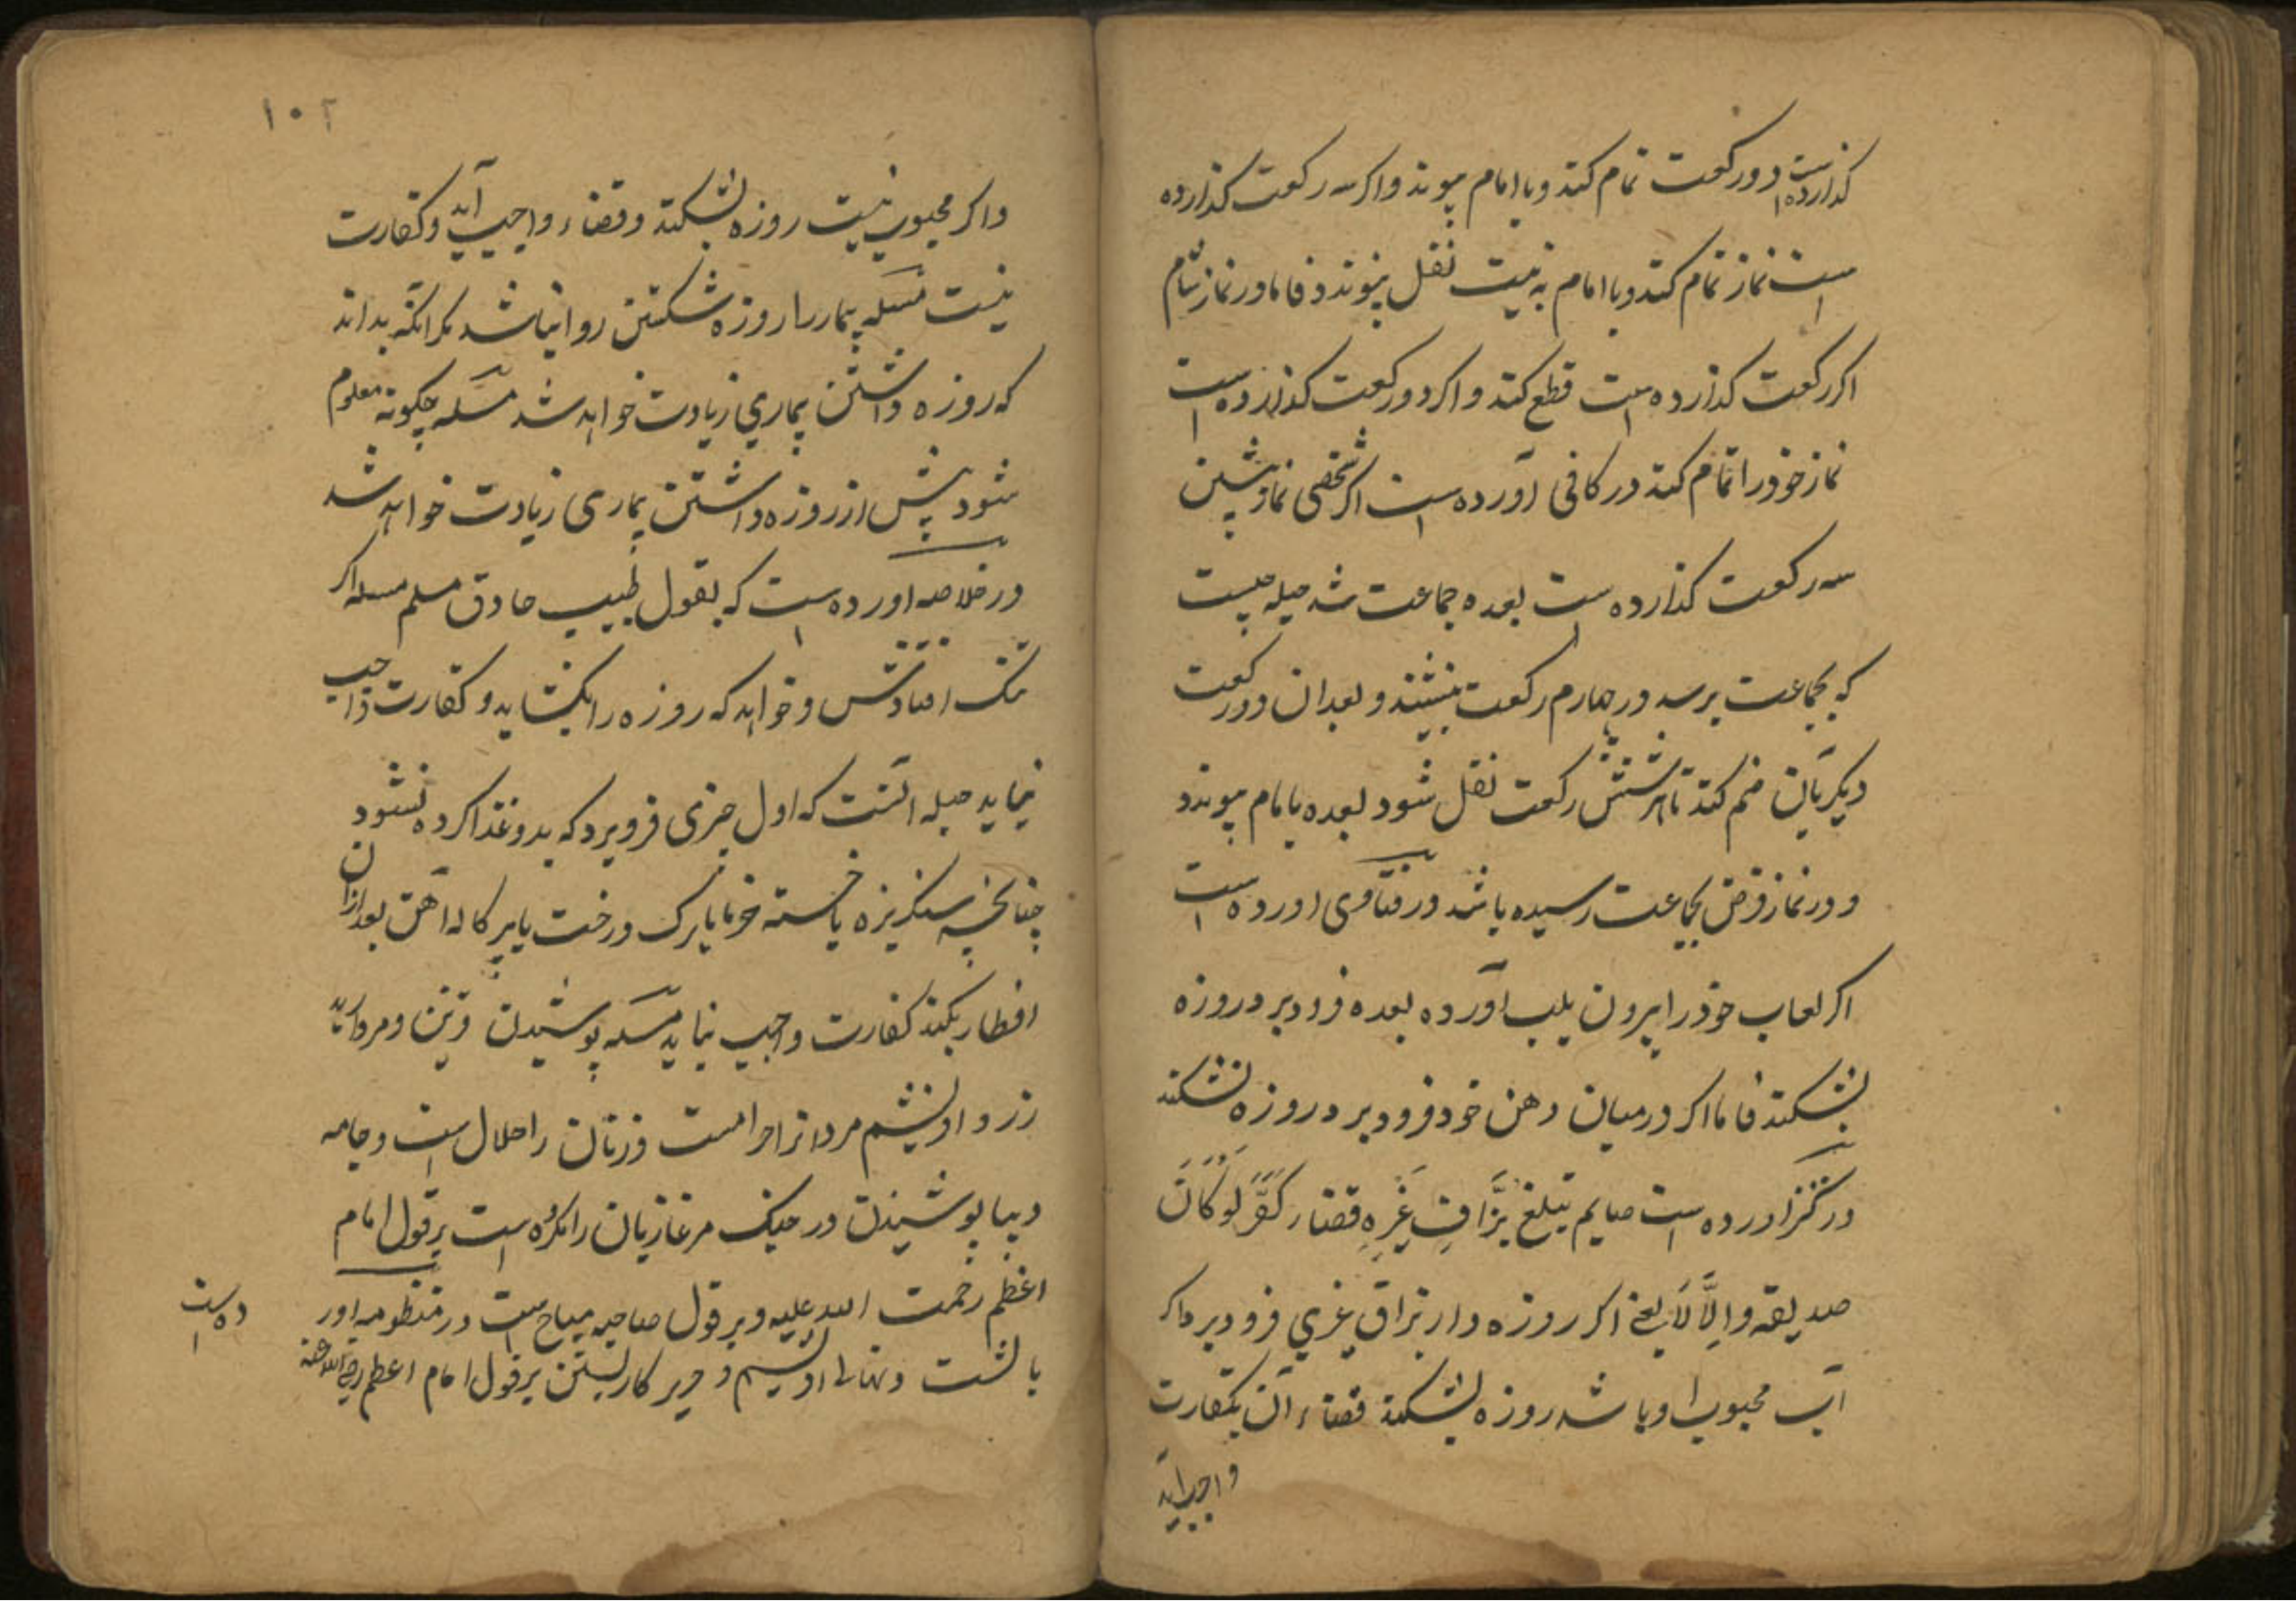 گذارده است دو رکعت تمام کند و با امام پیوندد و اگر سه رکعت گذارده
است نماز تمام کند و با امام به نیت نفل پیوندد فاما در نماز شام
اگر رکعت گذارده است قطع کند و اگر دو رکعت گذارده است
نماز خود را تمام کند در کافی آورده است اگر شخصی نماز پیشین
سه رکعت گذارده است بعده جماعت شد حیله چیست
که بجماعت برسد در چهارم رکعت بنشیند و بعد ان دو رکعت
دیگر بآن ضم کند تا هر شش رکعت نفل شود بعده بامام پیوندد
و در نماز فرض بجماعت رسیده باشد در فتاوی اورده است
اکر لعاب خود را بیرون بلب آورده بعده فرو دبر د روزه
بشکند فاما اکر درمیان دهن خود فرو دبر د روزه نشکند
در کنز اورده است صایم یبتلع بزاق غیره قضا و کفر لو کان
صدیقه والا لا یعنی اکر روزه دار بزاق غیری فرو دبر د اکر
آب محبوب او باشد روزه بشکند قضاء آن بکفارت
واجب اید
۱۰۲
واکر محبوب نیست روزه بشکند و قضاء واجب آید و کفارت
نیست مسئله بیمار را روزه شکستن روا نباشد مکر انکه بداند
که روزه داشتن بیماری زیادت خواهد شد مسئله چکونه معلوم
شود پیش از روزه داشتن بیماری زیادت خواهد شد
در خلاصه اورده است که بقول طبیب حاذق مسلم مسئله اکر
تنک افتادش و خواهد که روزه را بکشاید و کفارت واجب
نیاید حیله آنست که اول چیزی فرو برد که بدو غذا کرده نشود
چنانچه سنکریزه یا خسته خرما یا برک درخت یا پرکاله آهن بعد ازان
افطار بکند کفارت واجب نیاید مسئله پوشیدن
زر و ابریشم مردانرا حرامست و زنان را حلال است و جامه
دیبا پوشیدن در جنک مر غازیان را مکروه است بر قول امام
اعظم رحمت الله علیه و بر قول صاحبیه مباح است در منظومه اور
ده است
بالشت و نهالی ابریشم و حریر کار بستن بر قول امام اعظم رضی الله عنه